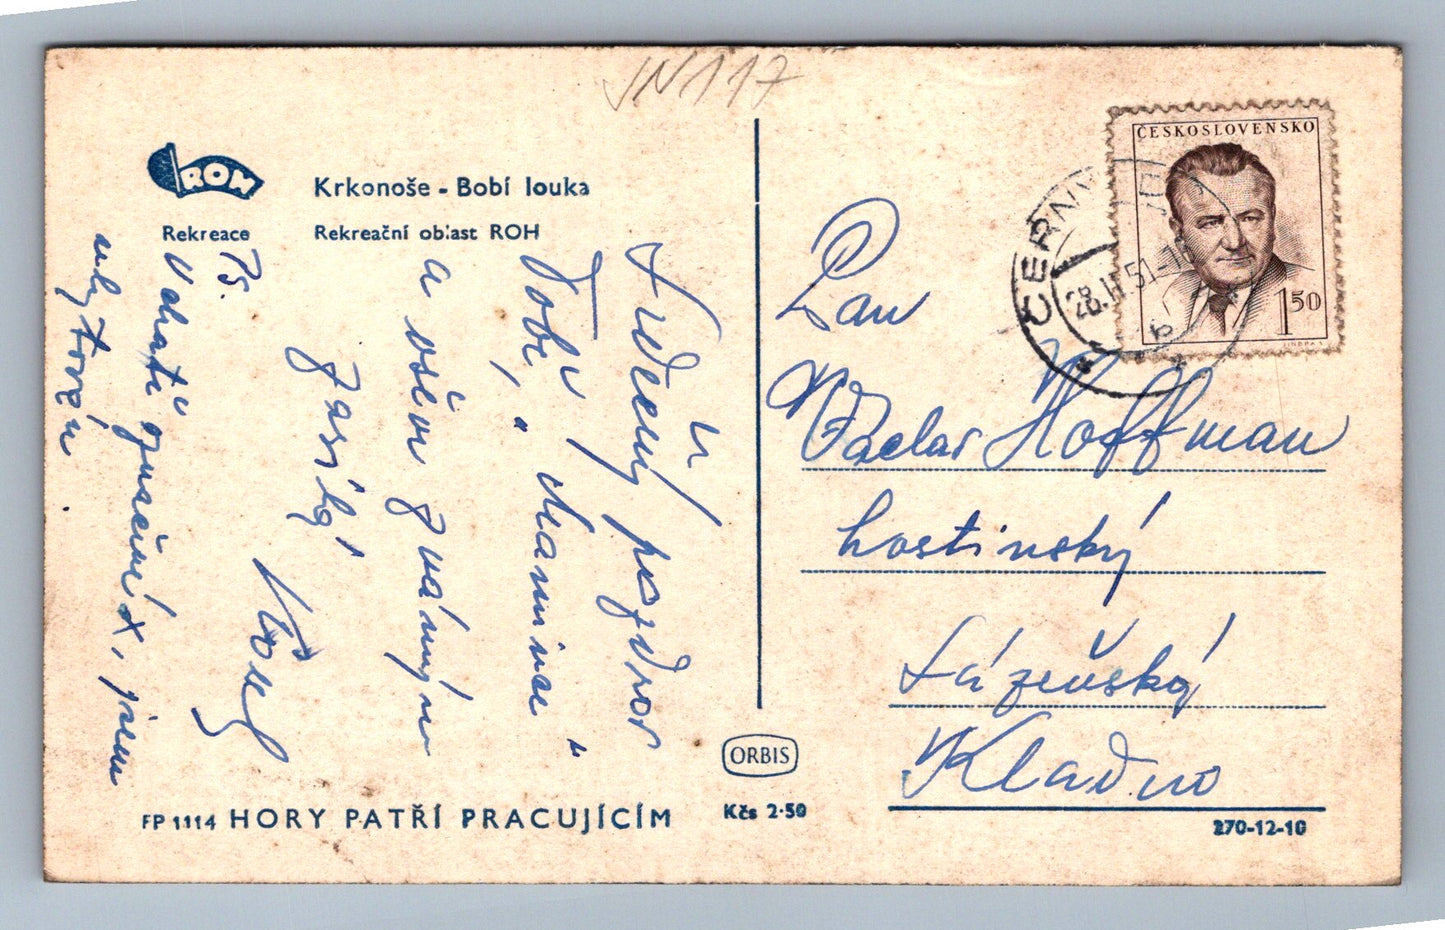 VN117
ROH
Rekreace
Krkonoše - Bobí louka
Rekreační oblast ROH
Srdečný pozdrav
Tobě, „Mamince“
a všem známým
zasílá
Josef
PS.
V chatě
jsem
Pan
Václav Hoffman
hostinský
Lázeňská
Kladno
ČESKOSLOVENSKO
1 50
JINDRA S.
ČERNÝ DŮL
28.II.51-16
b
ORBIS
FP 1114 HORY PATŘÍ PRACUJÍCÍM
Kčs 2·50
270-12-10